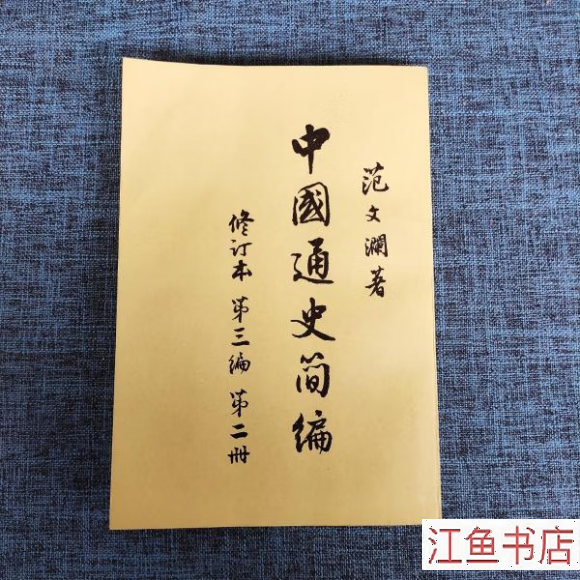 范文瀾著
中國通史简编
修订本 第三编 第二册
江鱼书店